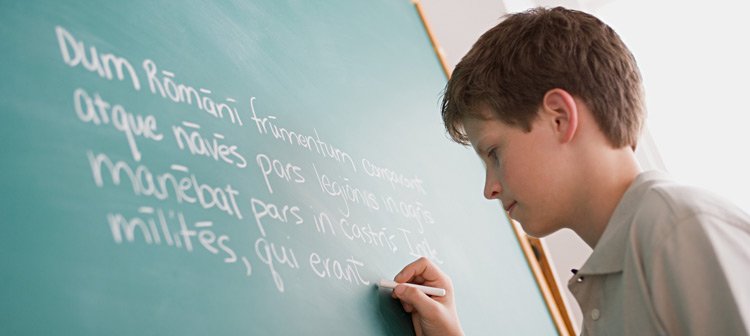 Dum Rōmānī frūmentum comparant
atque nāvēs pars legiōnis in agrīs
manēbat pars in castrīs
mīlitēs, quī erant